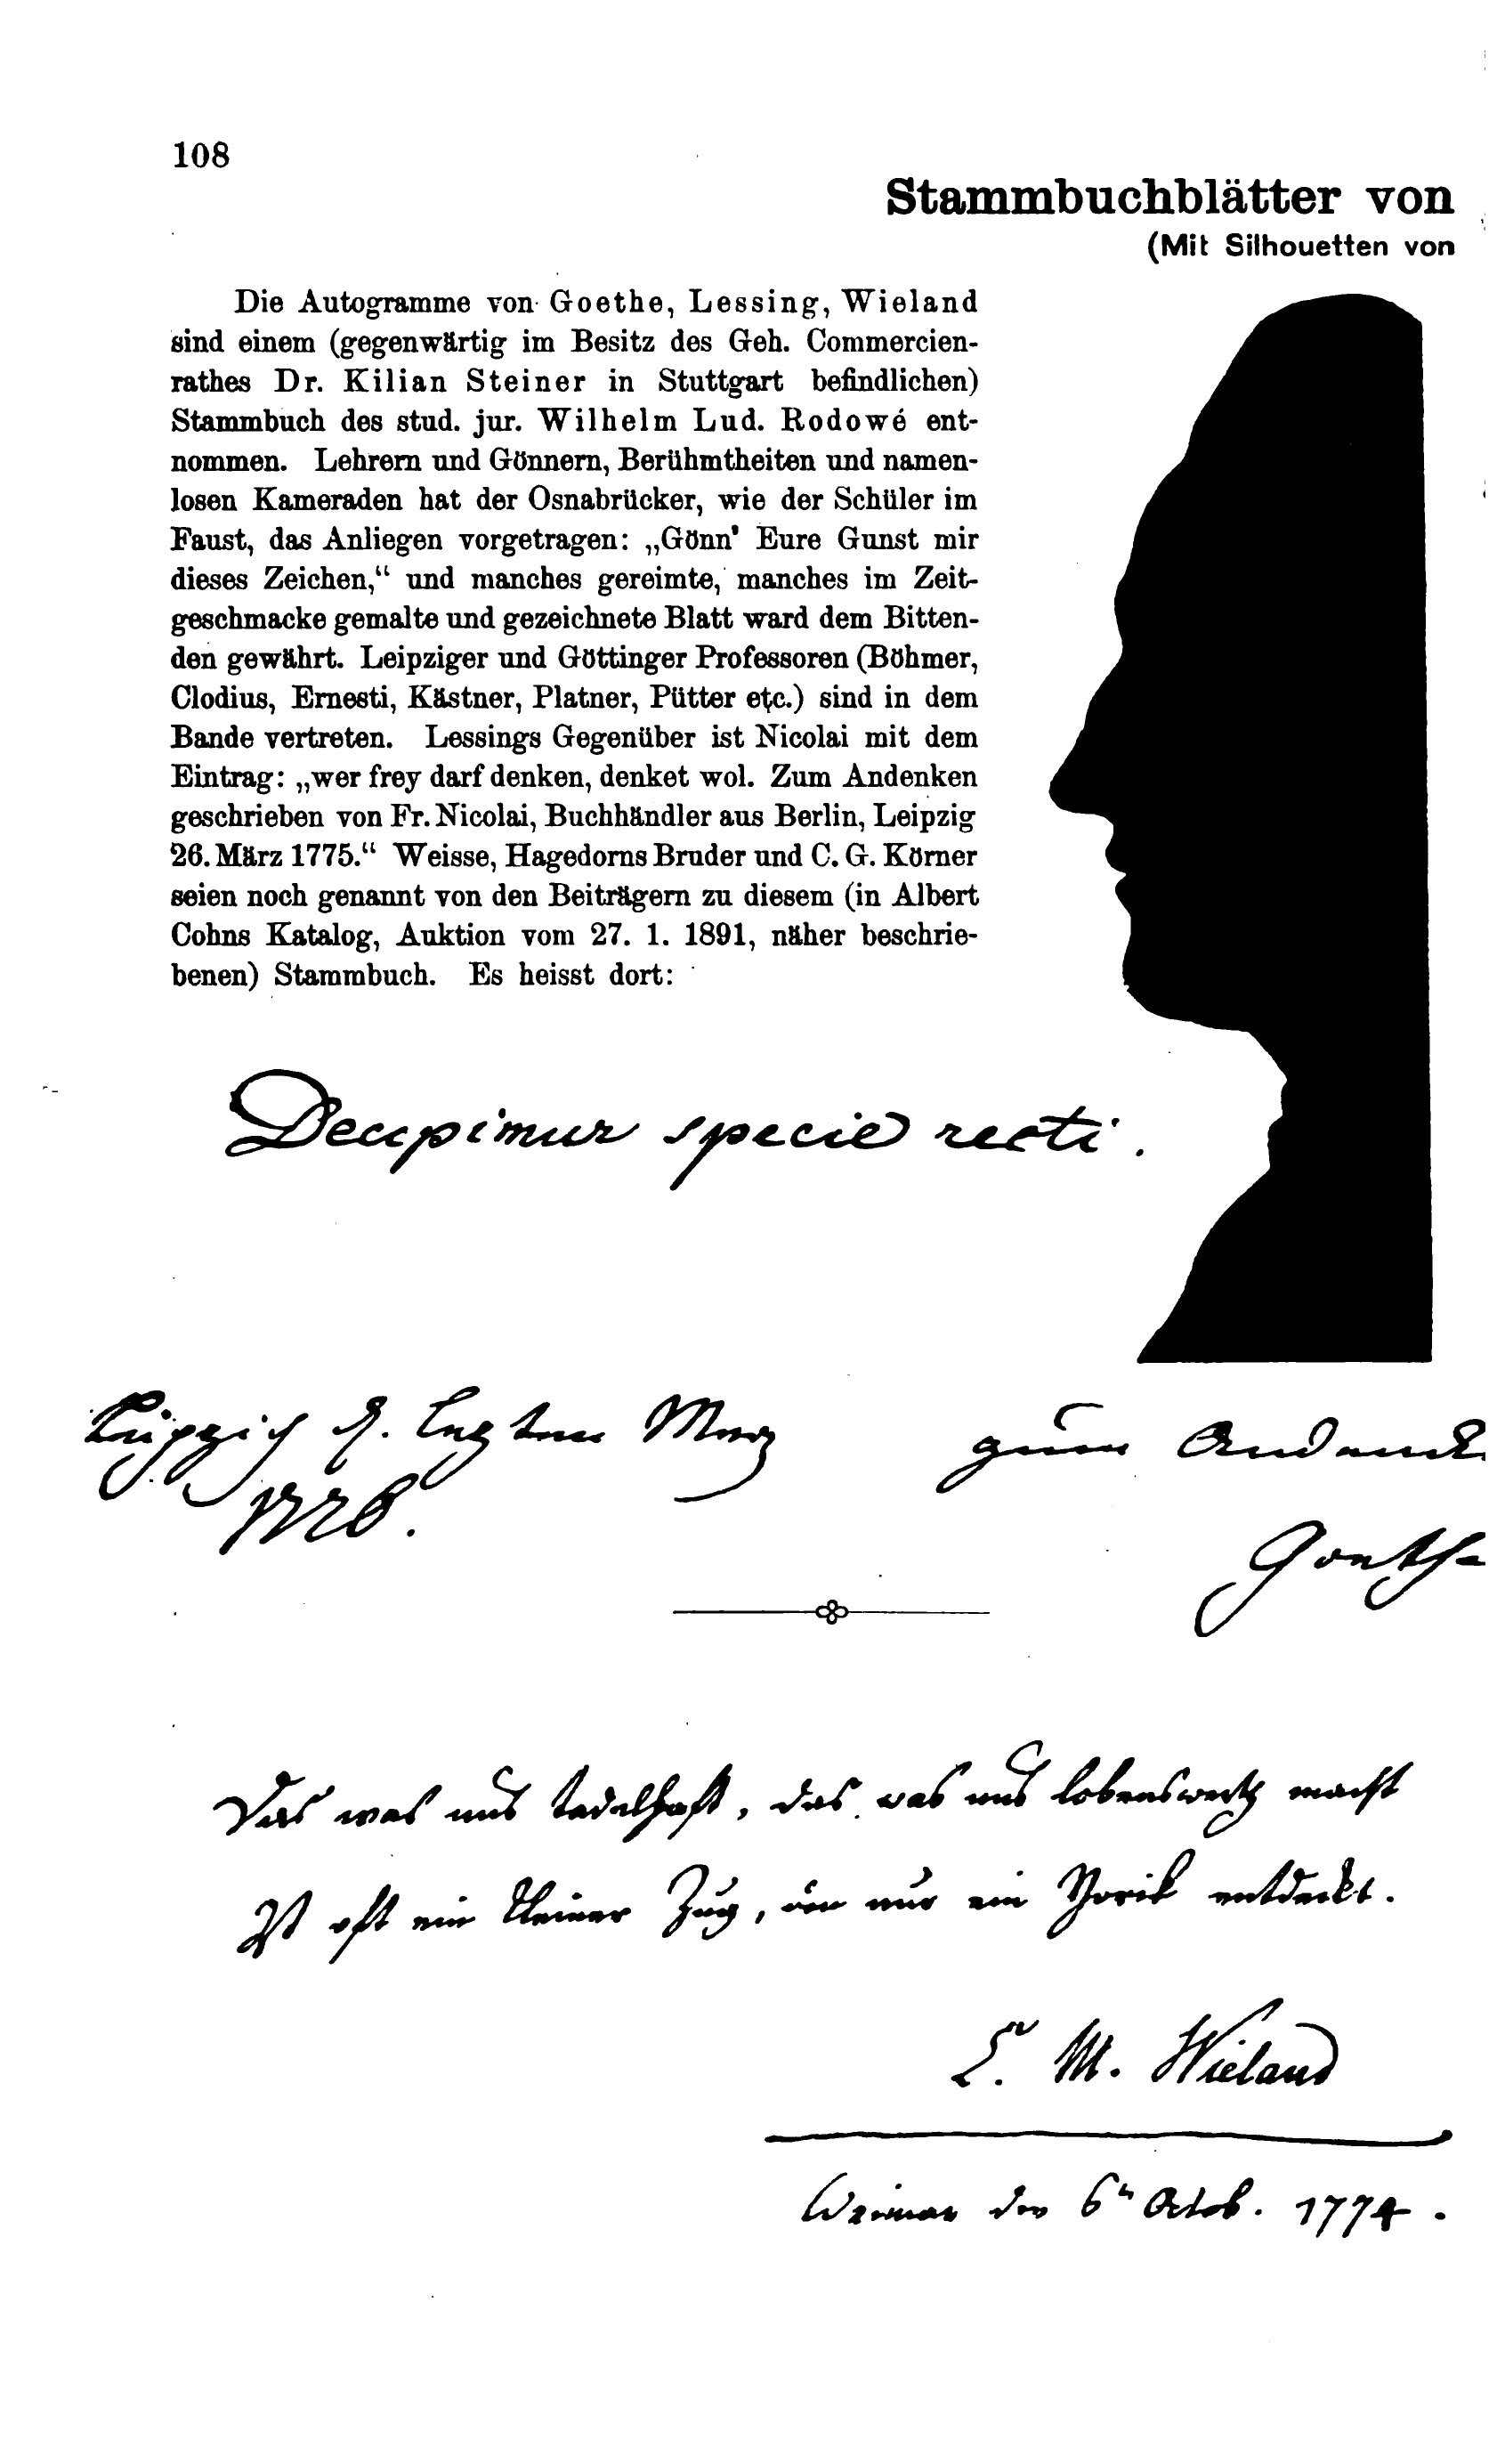 108
Stammbuchblätter von
(Mit Silhouetten von
Die Autogramme von Goethe, Lessing, Wieland
sind einem (gegenwärtig im Besitz des Geh. Commercien-
rathes Dr. Kilian Steiner in Stuttgart befindlichen)
Stammbuch des stud. jur. Wilhelm Lud. Rodowé ent-
nommen. Lehrern und Gönnern, Berühmtheiten und namen-
losen Kameraden hat der Osnabrücker, wie der Schüler im
Faust, das Anliegen vorgetragen: „Gönn' Eure Gunst mir
dieses Zeichen,“ und manches gereimte, manches im Zeit-
geschmacke gemalte und gezeichnete Blatt ward dem Bitten-
den gewährt. Leipziger und Göttinger Professoren (Böhmer,
Clodius, Ernesti, Kästner, Platner, Pütter etc.) sind in dem
Bande vertreten. Lessings Gegenüber ist Nicolai mit dem
Eintrag: „wer frey darf denken, denket wol. Zum Andenken
geschrieben von Fr. Nicolai, Buchhändler aus Berlin, Leipzig
26. März 1775.“ Weisse, Hagedorns Bruder und C. G. Körner
seien noch genannt von den Beiträgern zu diesem (in Albert
Cohns Katalog, Auktion vom 27. 1. 1891, näher beschrie-
benen) Stammbuch. Es heisst dort:
Decipimur specie recti.
Leipzig März zum Andenck
Goethe
Das was uns tadelhaft, das was uns lobenswerth macht
Ist oft ein kleiner Zug, den nur ein Yorik entdeckt.
C. M. Wieland
Weimar den 6ⁿ Octob. 1774.